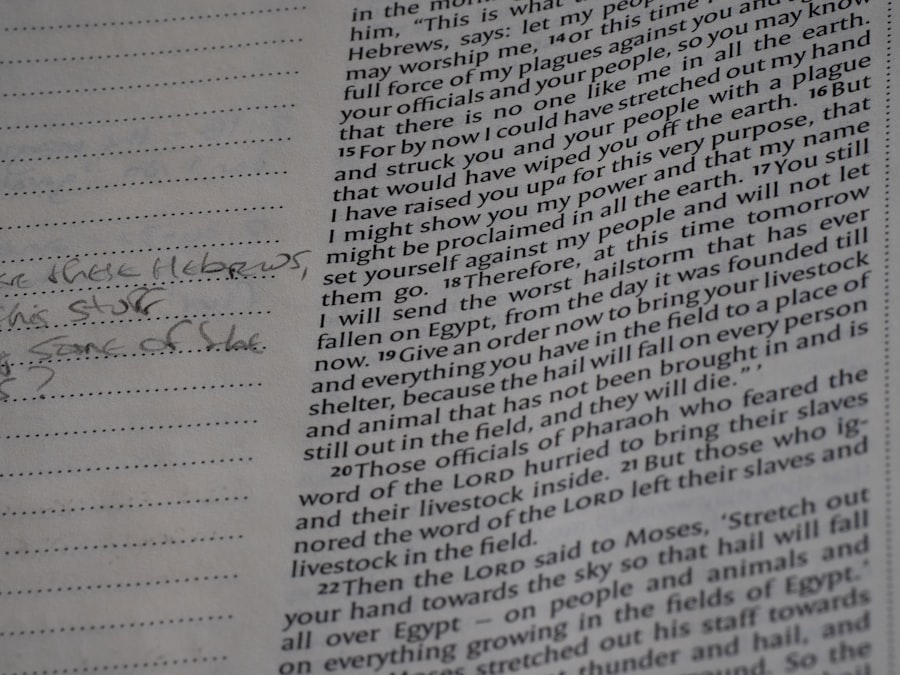 these Hebrews,
this stuff
some of the
?
in the
him, "This is what
Hebrews, says: let my
may worship me, 14or this time
full force of my plagues against you and
your officials and your people, so you may know
that there is no one like me in all the earth.
15For by now I could have stretched out my hand
and struck you and your people with a plague
that would have wiped you off the earth. 16But
I have raised you upa for this very purpose, that
I might show you my power and that my name
might be proclaimed in all the earth. 17You still
set yourself against my people and will not let
them go. 18Therefore, at this time tomorrow
I will send the worst hailstorm that has ever
fallen on Egypt, from the day it was founded till
now. 19Give an order now to bring your livestock
and everything you have in the field to a place of
shelter, because the hail will fall on every person
and animal that has not been brought in and is
still out in the field, and they will die." '
20Those officials of Pharaoh who feared the
word of the LORD hurried to bring their slaves
and their livestock inside. 21But those who ig-
nored the word of the LORD left their slaves and
livestock in the field.
22Then the LORD said to Moses, 'Stretch out
your hand towards the sky so that hail will fall
all over Egypt – on people and animals and
on everything growing in the fields of Egypt.'
Moses stretched out his staff towards
thunder and hail, and
So the